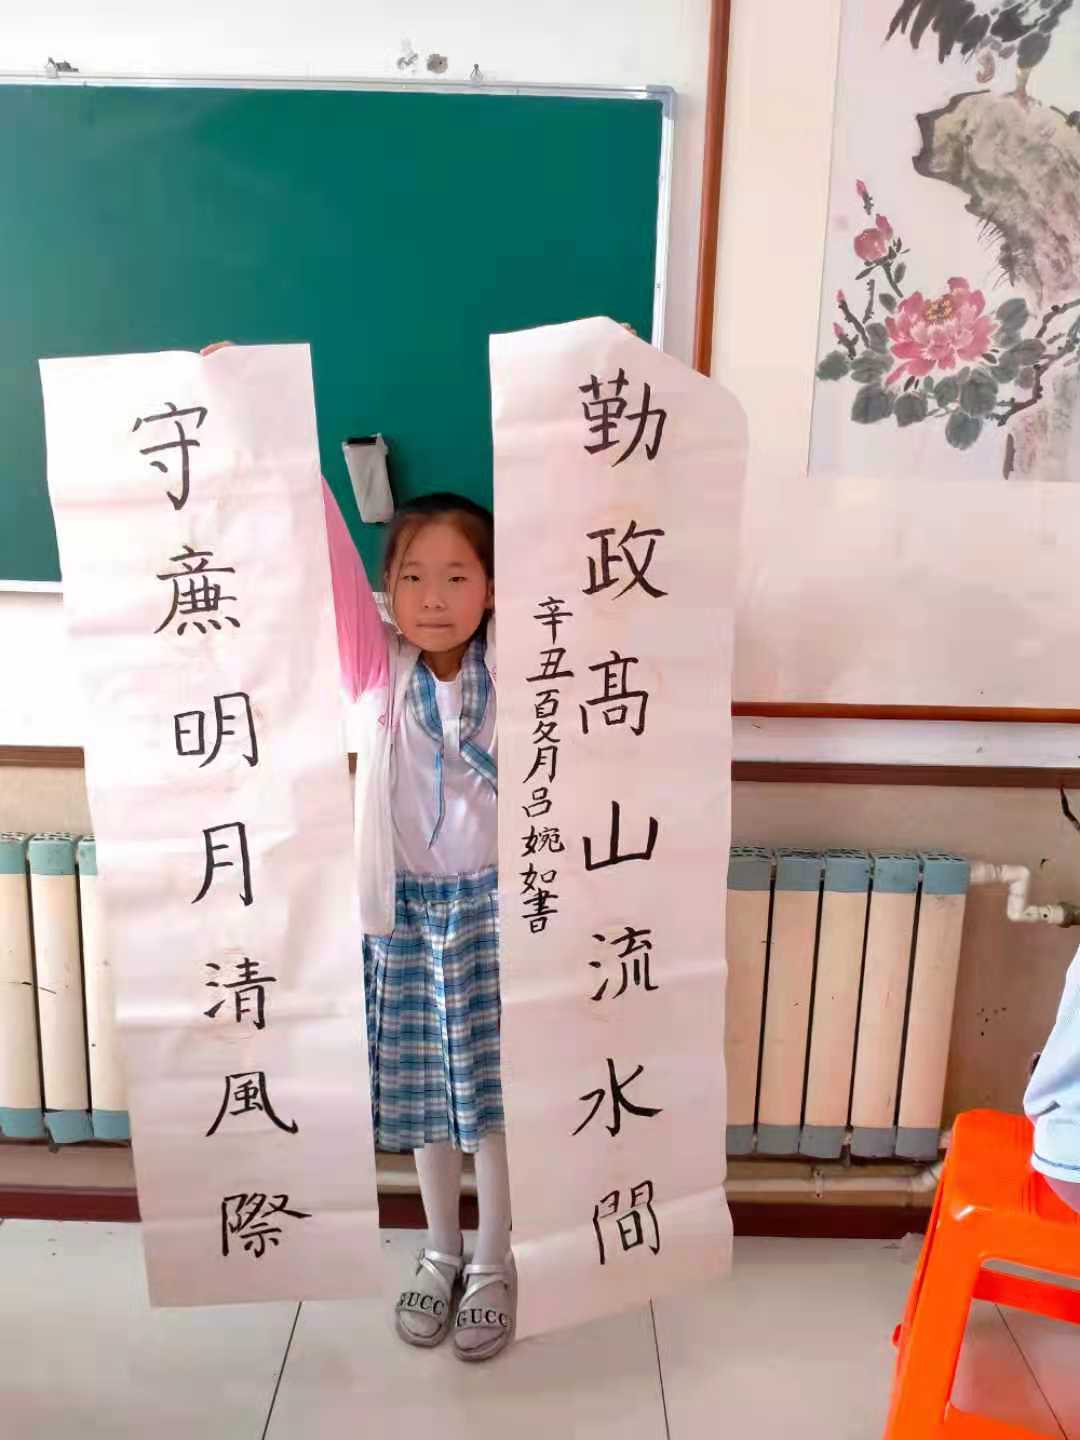 勤政高山流水間
辛丑夏月吕婉如書
守廉明月清風際
GUCC
GUCC